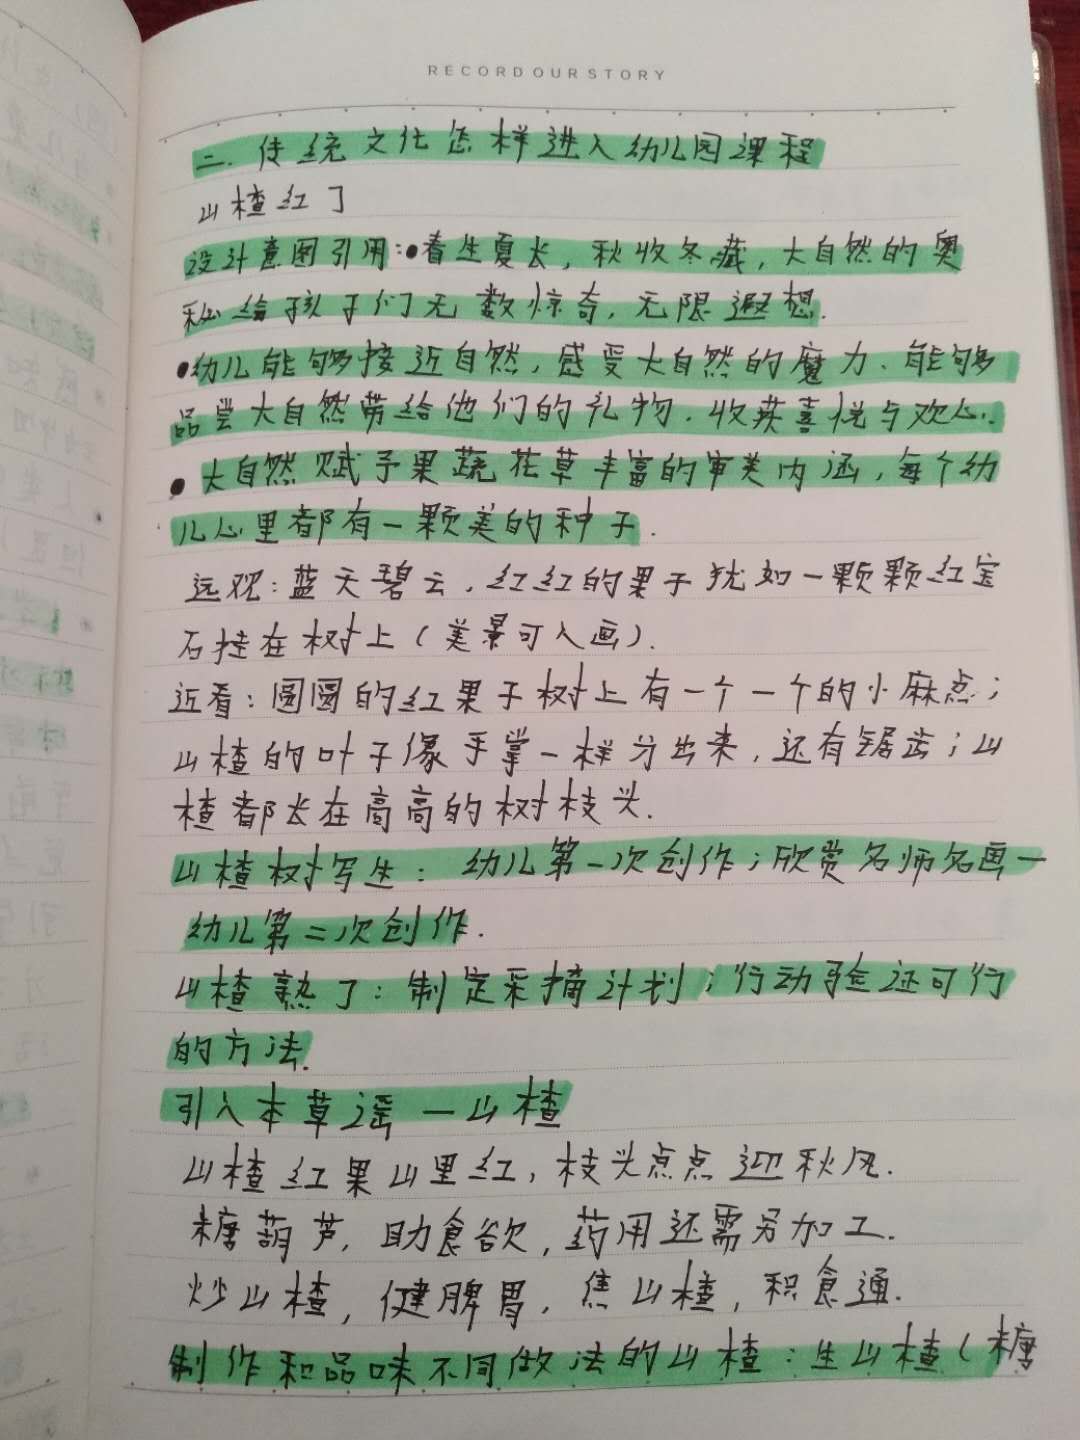 RECORD OUR STORY
二.传统文化怎样进入幼儿园课程
山楂红了
设计意图引用:●春生夏长,秋收冬藏,大自然的奥
秘给孩子们无数惊奇,无限遐想.
●幼儿能够接近自然,感受大自然的魔力、能够
品尝大自然带给他们的礼物.收获喜悦与欢心.
●大自然赋予果蔬花草丰富的审美内涵,每个幼
儿心里都有一颗美的种子.
远观:蓝天碧云,红红的果子犹如一颗颗红宝
石挂在树上(美景可入画).
近看:圆圆的红果子树上有一个一个的小麻点;
山楂的叶子像手掌一样分出来,还有锯齿;山
楂都长在高高的树枝头.
山楂树写生:幼儿第一次创作;欣赏名师名画—
幼儿第二次创作.
山楂熟了:制定采摘计划;行动验证可行
的方法.
引入本草谣—山楂
山楂红果山里红,枝头点点迎秋风.
糖葫芦,助食欲,药用还需另加工.
炒山楂,健脾胃,焦山楂,积食通.
制作和品味不同做法的山楂:生山楂(糖